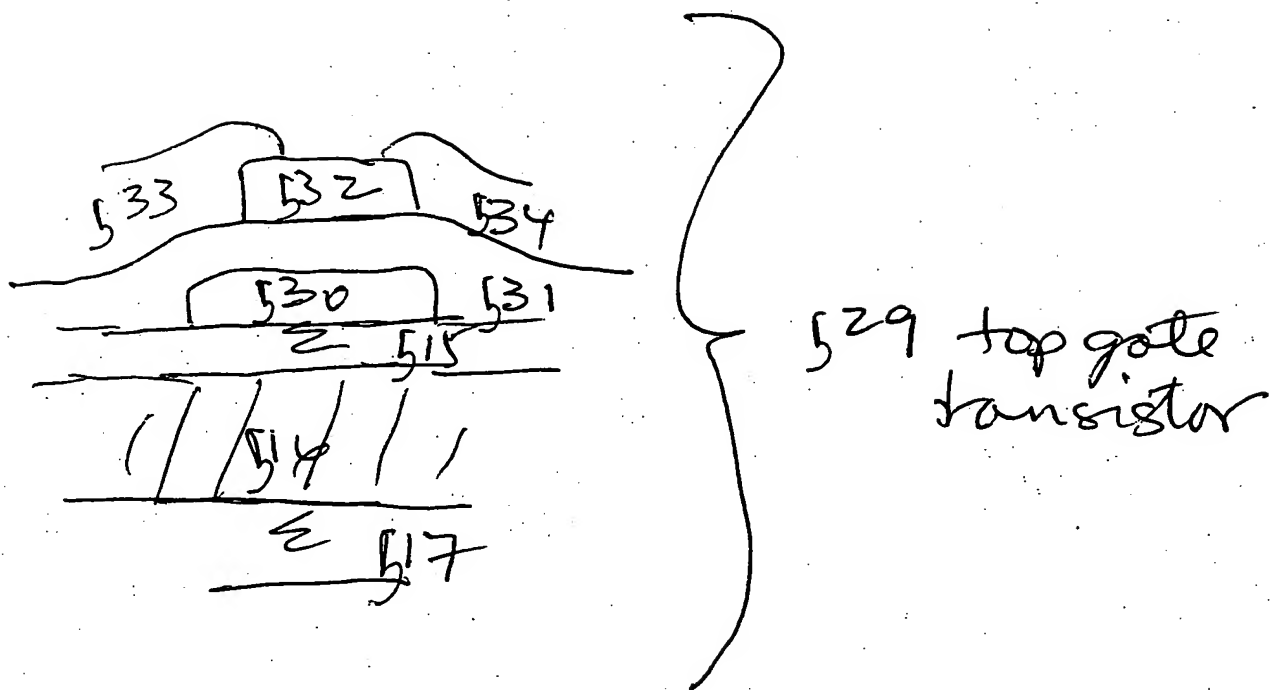 533 532 534
530 531
515
514
517
529 top gate
transistor